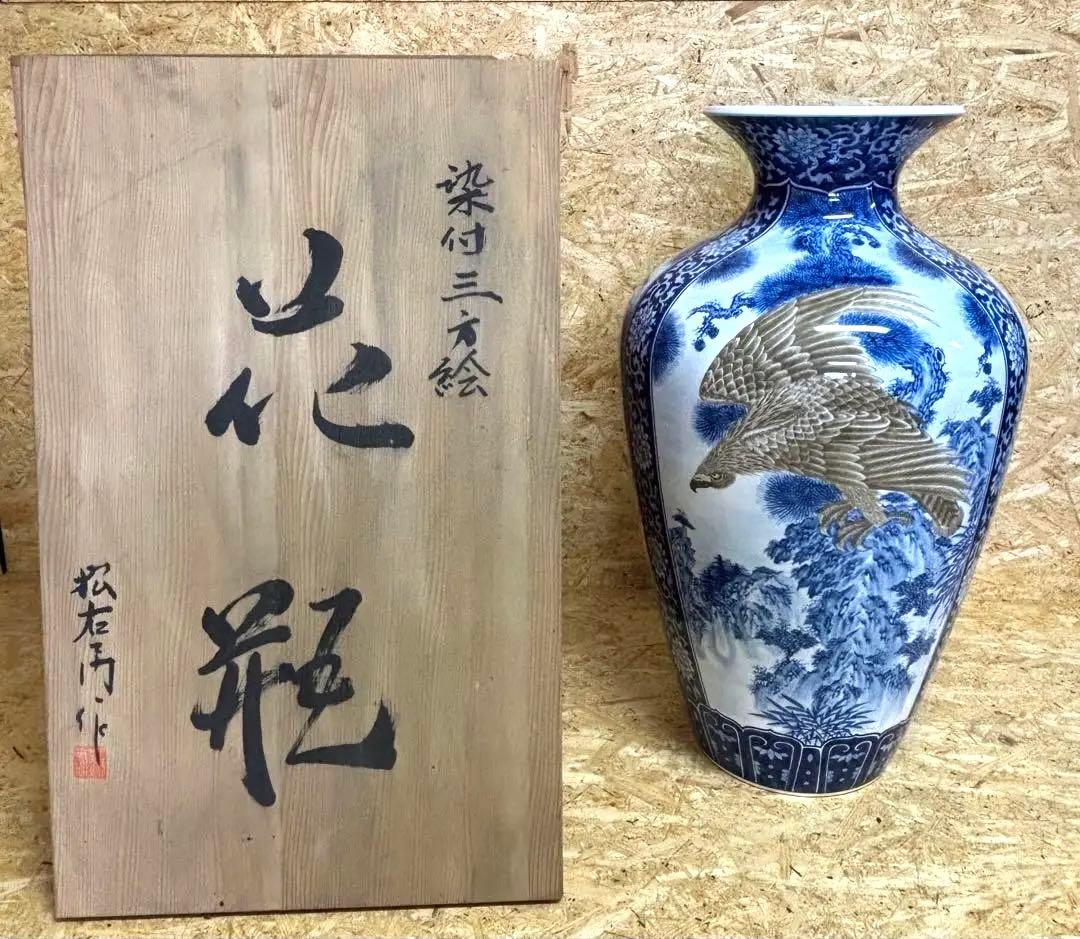 染付三方絵
花瓶
松右衛門作